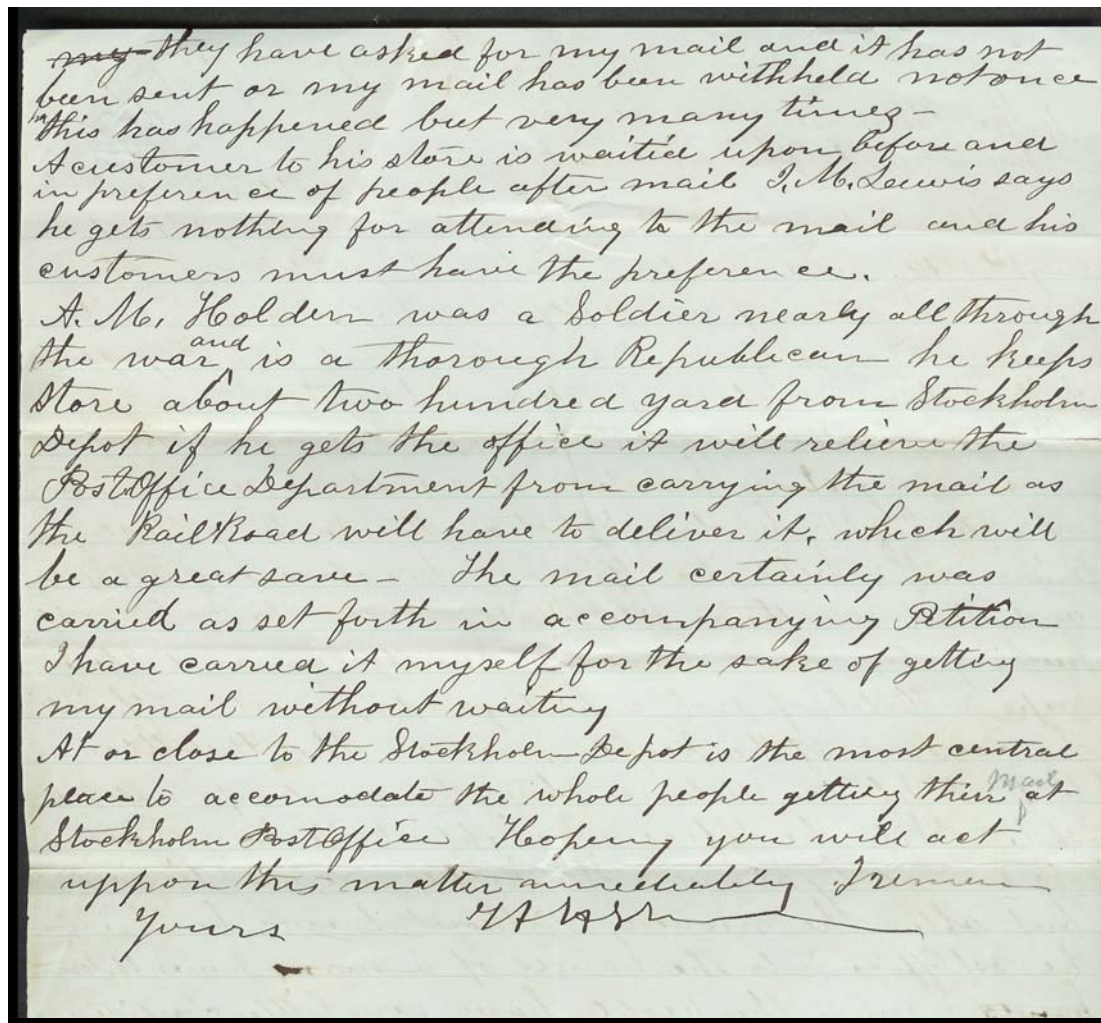 my they have asked for my mail and it has not
been sent or my mail has been withheld not once
this has happened but very many times –
A customer to his store is waitid upon before and
in preference of people after mail J. M. Lewis says
he gets nothing for attending to the mail and his
customers must have the preference.
A. M. Holdern was a Soldier nearly all through
the war and is a thorough Republican he keeps
store about two hundred yard from Stockholm
Depot if he gets the office it will relieve the
Post Office Department from carrying the mail as
the Rail Road will have to deliver it, which will
be a great save – The mail certainly was
carried as set forth in accompanying Petition
I have carried it myself for the sake of getting
my mail without waiting
At or close to the Stockholm Depot is the most central
place to accomodate the whole people getting their mail at
Stockholm Post Office Hoping you will act
uppon this matter immediately I remain
Yours